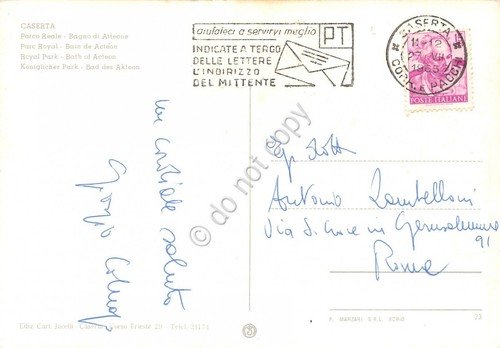 CASERTA
Parco Reale - Bagno di Atteone
Parc Royal - Bain de Acteon
Royal Park - Bath of Acteon
Königlicher Park - Bad des Akteon
aiutateci a servirvi meglio
PT
INDICATE A TERGO
DELLE LETTERE
L'INDIRIZZO
DEL MITTENTE
CASERTA
CORR. E PACCHI
POSTE ITALIANE
un cordiale saluto
Giorgio
Dott.
Antonio Zambelloni
Via S. Croce in Gerusalemme
91
Roma
do not copy
Ediz. Cart. Caserta Corso Trieste 29 - Telef. 21171
P. MARZARI S.R.L. SCHIO
23